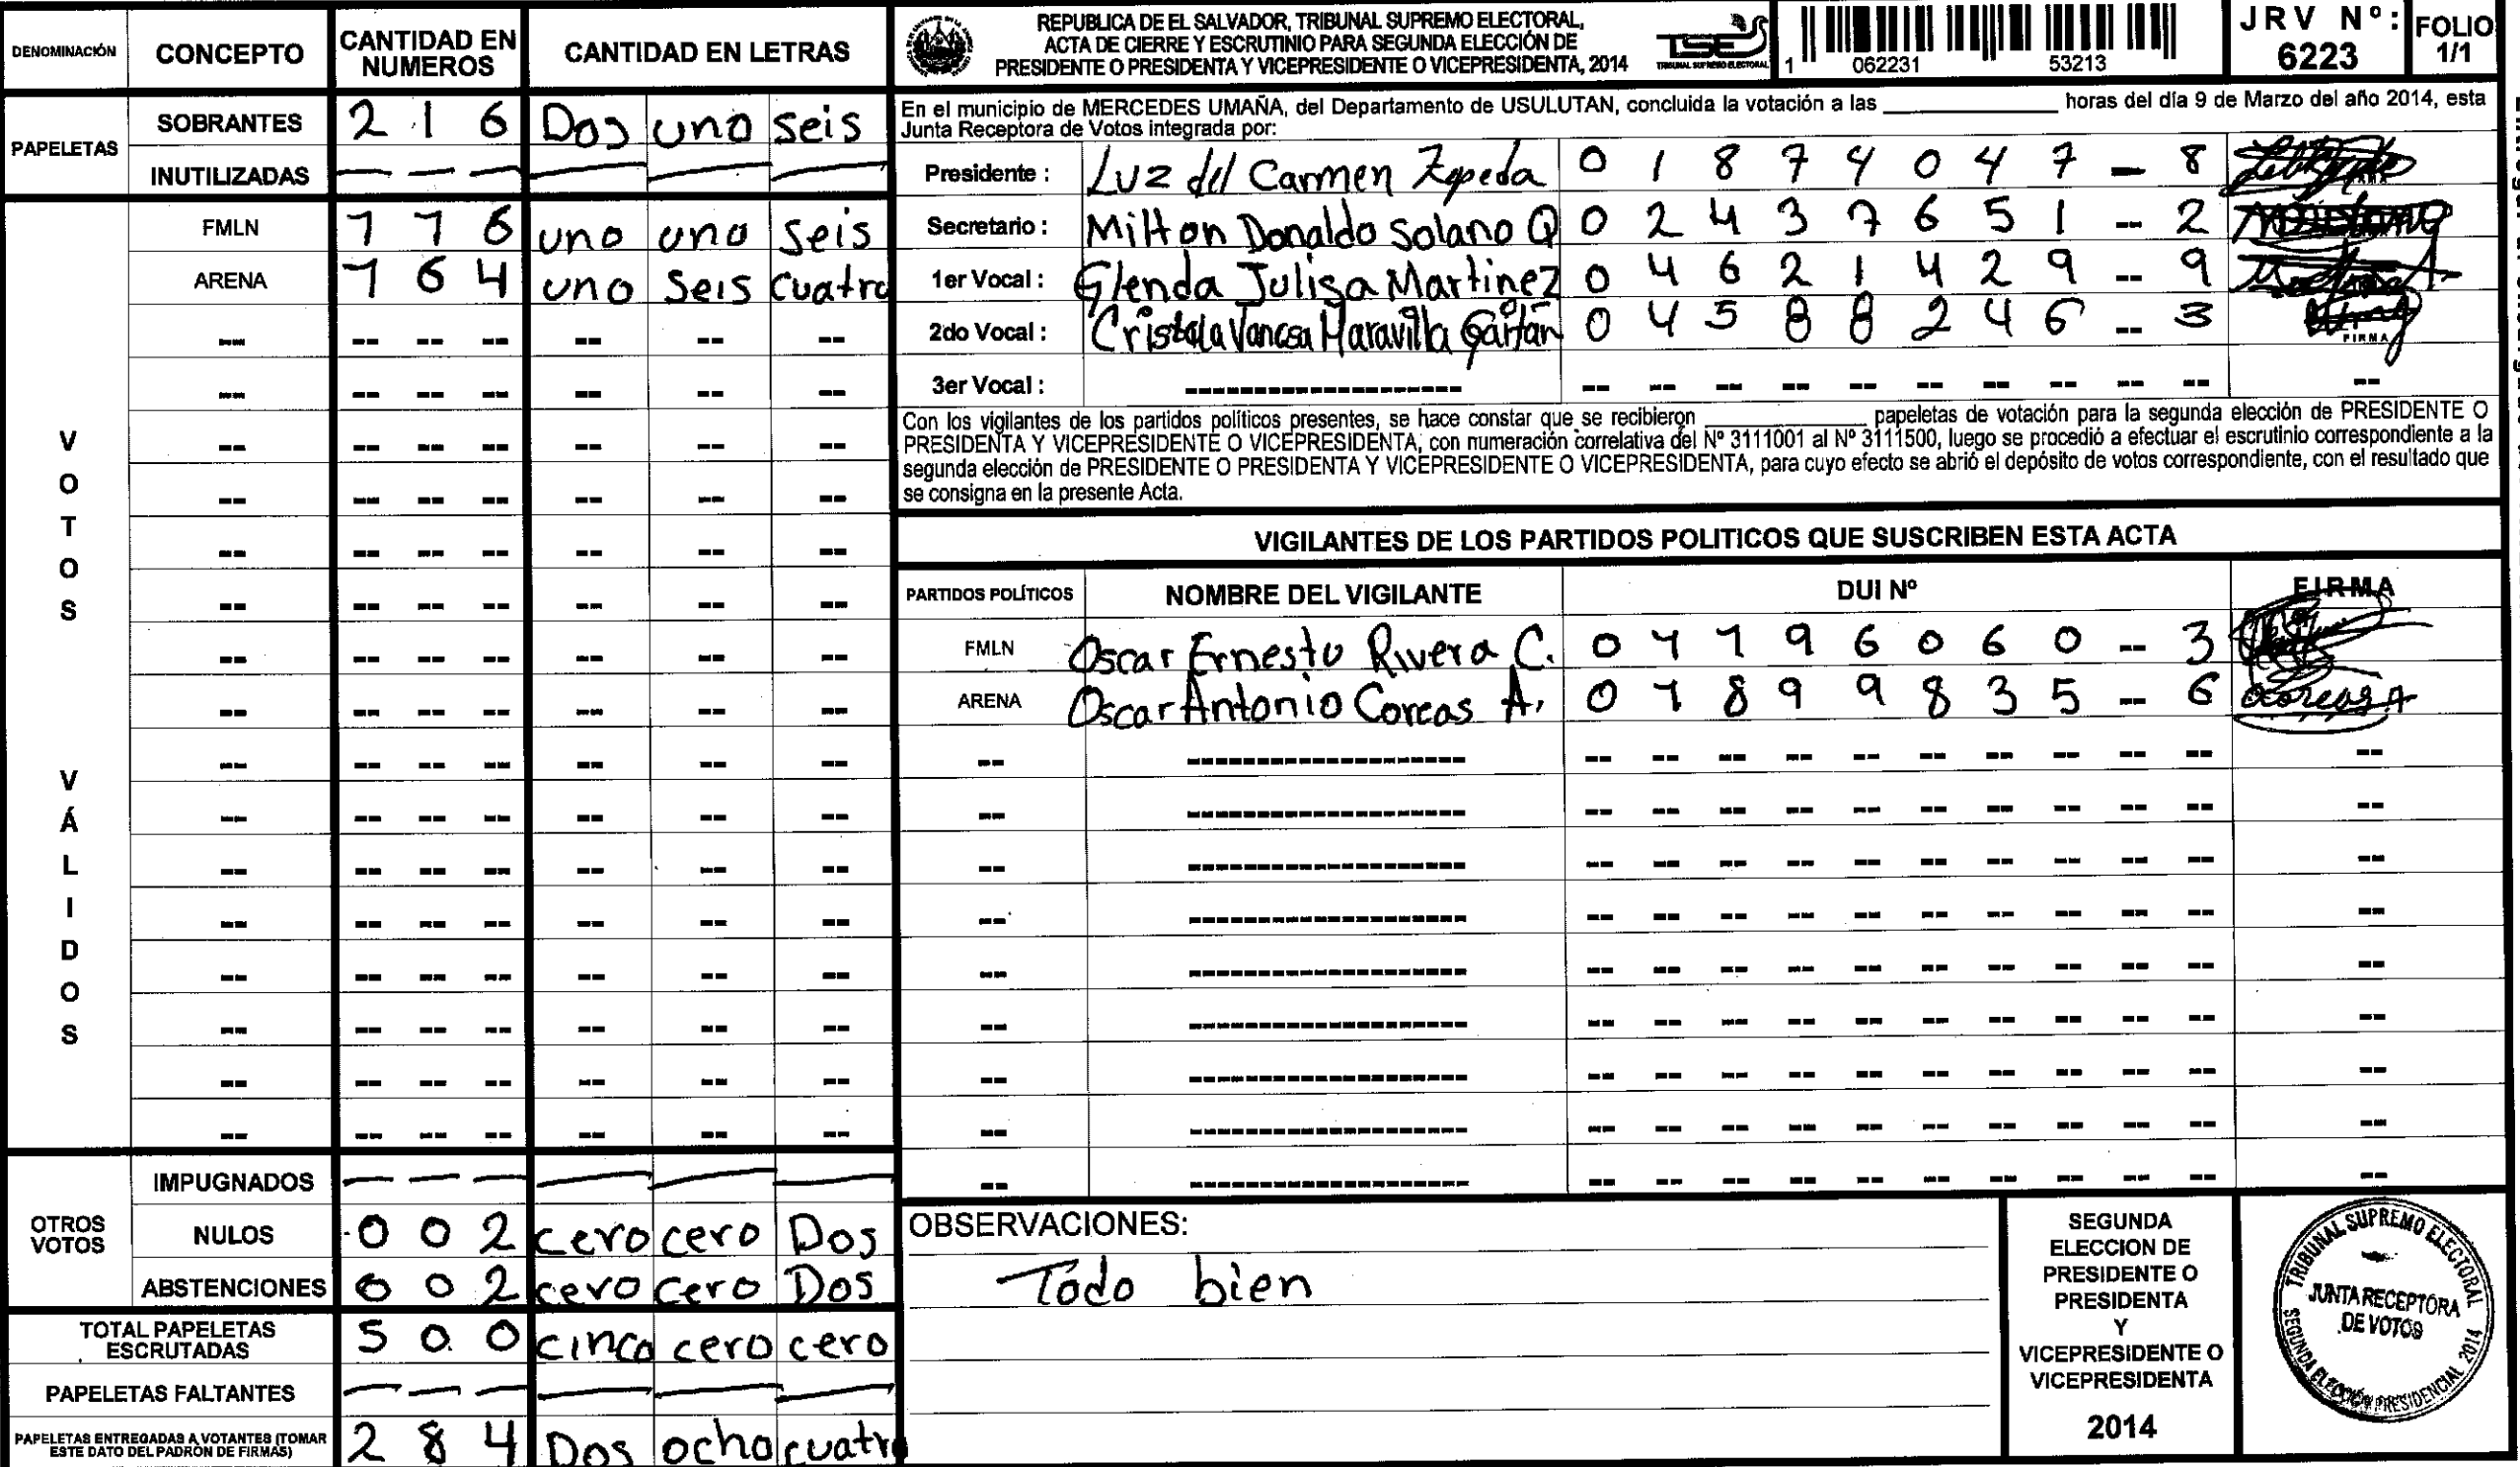 DENOMINACIÓN CONCEPTO CANTIDAD EN NUMEROS CANTIDAD EN LETRAS
PAPELETAS
SOBRANTES 2 1 6 Dos uno seis
INUTILIZADAS — — — — — —
VOTOS VÁLIDOS
FMLN 1 1 6 uno uno seis
ARENA 1 6 4 uno seis cuatro
OTROS VOTOS
IMPUGNADOS — — — — — —
NULOS 0 0 2 cero cero Dos
ABSTENCIONES 0 0 2 cero cero Dos
TOTAL PAPELETAS ESCRUTADAS 5 0 0 cinco cero cero
PAPELETAS FALTANTES — — — — — —
PAPELETAS ENTREGADAS A VOTANTES (TOMAR ESTE DATO DEL PADRÓN DE FIRMAS) 2 8 4 Dos ocho cuatro
REPUBLICA DE EL SALVADOR, TRIBUNAL SUPREMO ELECTORAL,
ACTA DE CIERRE Y ESCRUTINIO PARA SEGUNDA ELECCIÓN DE
PRESIDENTE O PRESIDENTA Y VICEPRESIDENTE O VICEPRESIDENTA, 2014
TSE
TRIBUNAL SUPREMO ELECTORAL
1 062231 53213
JRV Nº: 6223
FOLIO 1/1
En el municipio de MERCEDES UMAÑA, del Departamento de USULUTAN, concluida la votación a las ____ horas del día 9 de Marzo del año 2014, esta
Junta Receptora de Votos integrada por:
Presidente : Luz del Carmen Zepeda 0 1 8 7 4 0 4 7 - 8
Secretario : Milton Donaldo Solano Q 0 2 4 3 7 6 5 1 -- 2
1er Vocal : Glenda Julisa Martinez 0 4 6 2 1 4 2 9 -- 9
2do Vocal : Cristela Vanesa Maravilla Gaitán 0 4 5 8 8 2 4 6 -- 3
FIRMA
3er Vocal :
Con los vigilantes de los partidos políticos presentes, se hace constar que se recibieron ____ papeletas de votación para la segunda elección de PRESIDENTE O
PRESIDENTA Y VICEPRESIDENTE O VICEPRESIDENTA, con numeración correlativa del Nº 3111001 al Nº 3111500, luego se procedió a efectuar el escrutinio correspondiente a la
segunda elección de PRESIDENTE O PRESIDENTA Y VICEPRESIDENTE O VICEPRESIDENTA, para cuyo efecto se abrió el depósito de votos correspondiente, con el resultado que
se consigna en la presente Acta.
VIGILANTES DE LOS PARTIDOS POLITICOS QUE SUSCRIBEN ESTA ACTA
PARTIDOS POLÍTICOS NOMBRE DEL VIGILANTE DUI Nº FIRMA
FMLN Oscar Ernesto Rivera C. 0 4 1 9 6 0 6 0 -- 3
ARENA Oscar Antonio Coreas A. 0 1 8 9 9 8 3 5 -- 6
OBSERVACIONES:
Todo bien
SEGUNDA
ELECCION DE
PRESIDENTE O
PRESIDENTA
Y
VICEPRESIDENTE O
VICEPRESIDENTA
2014
TRIBUNAL SUPREMO ELECTORAL
JUNTA RECEPTORA
DE VOTOS
SEGUNDA ELECCIÓN PRESIDENCIAL 2014